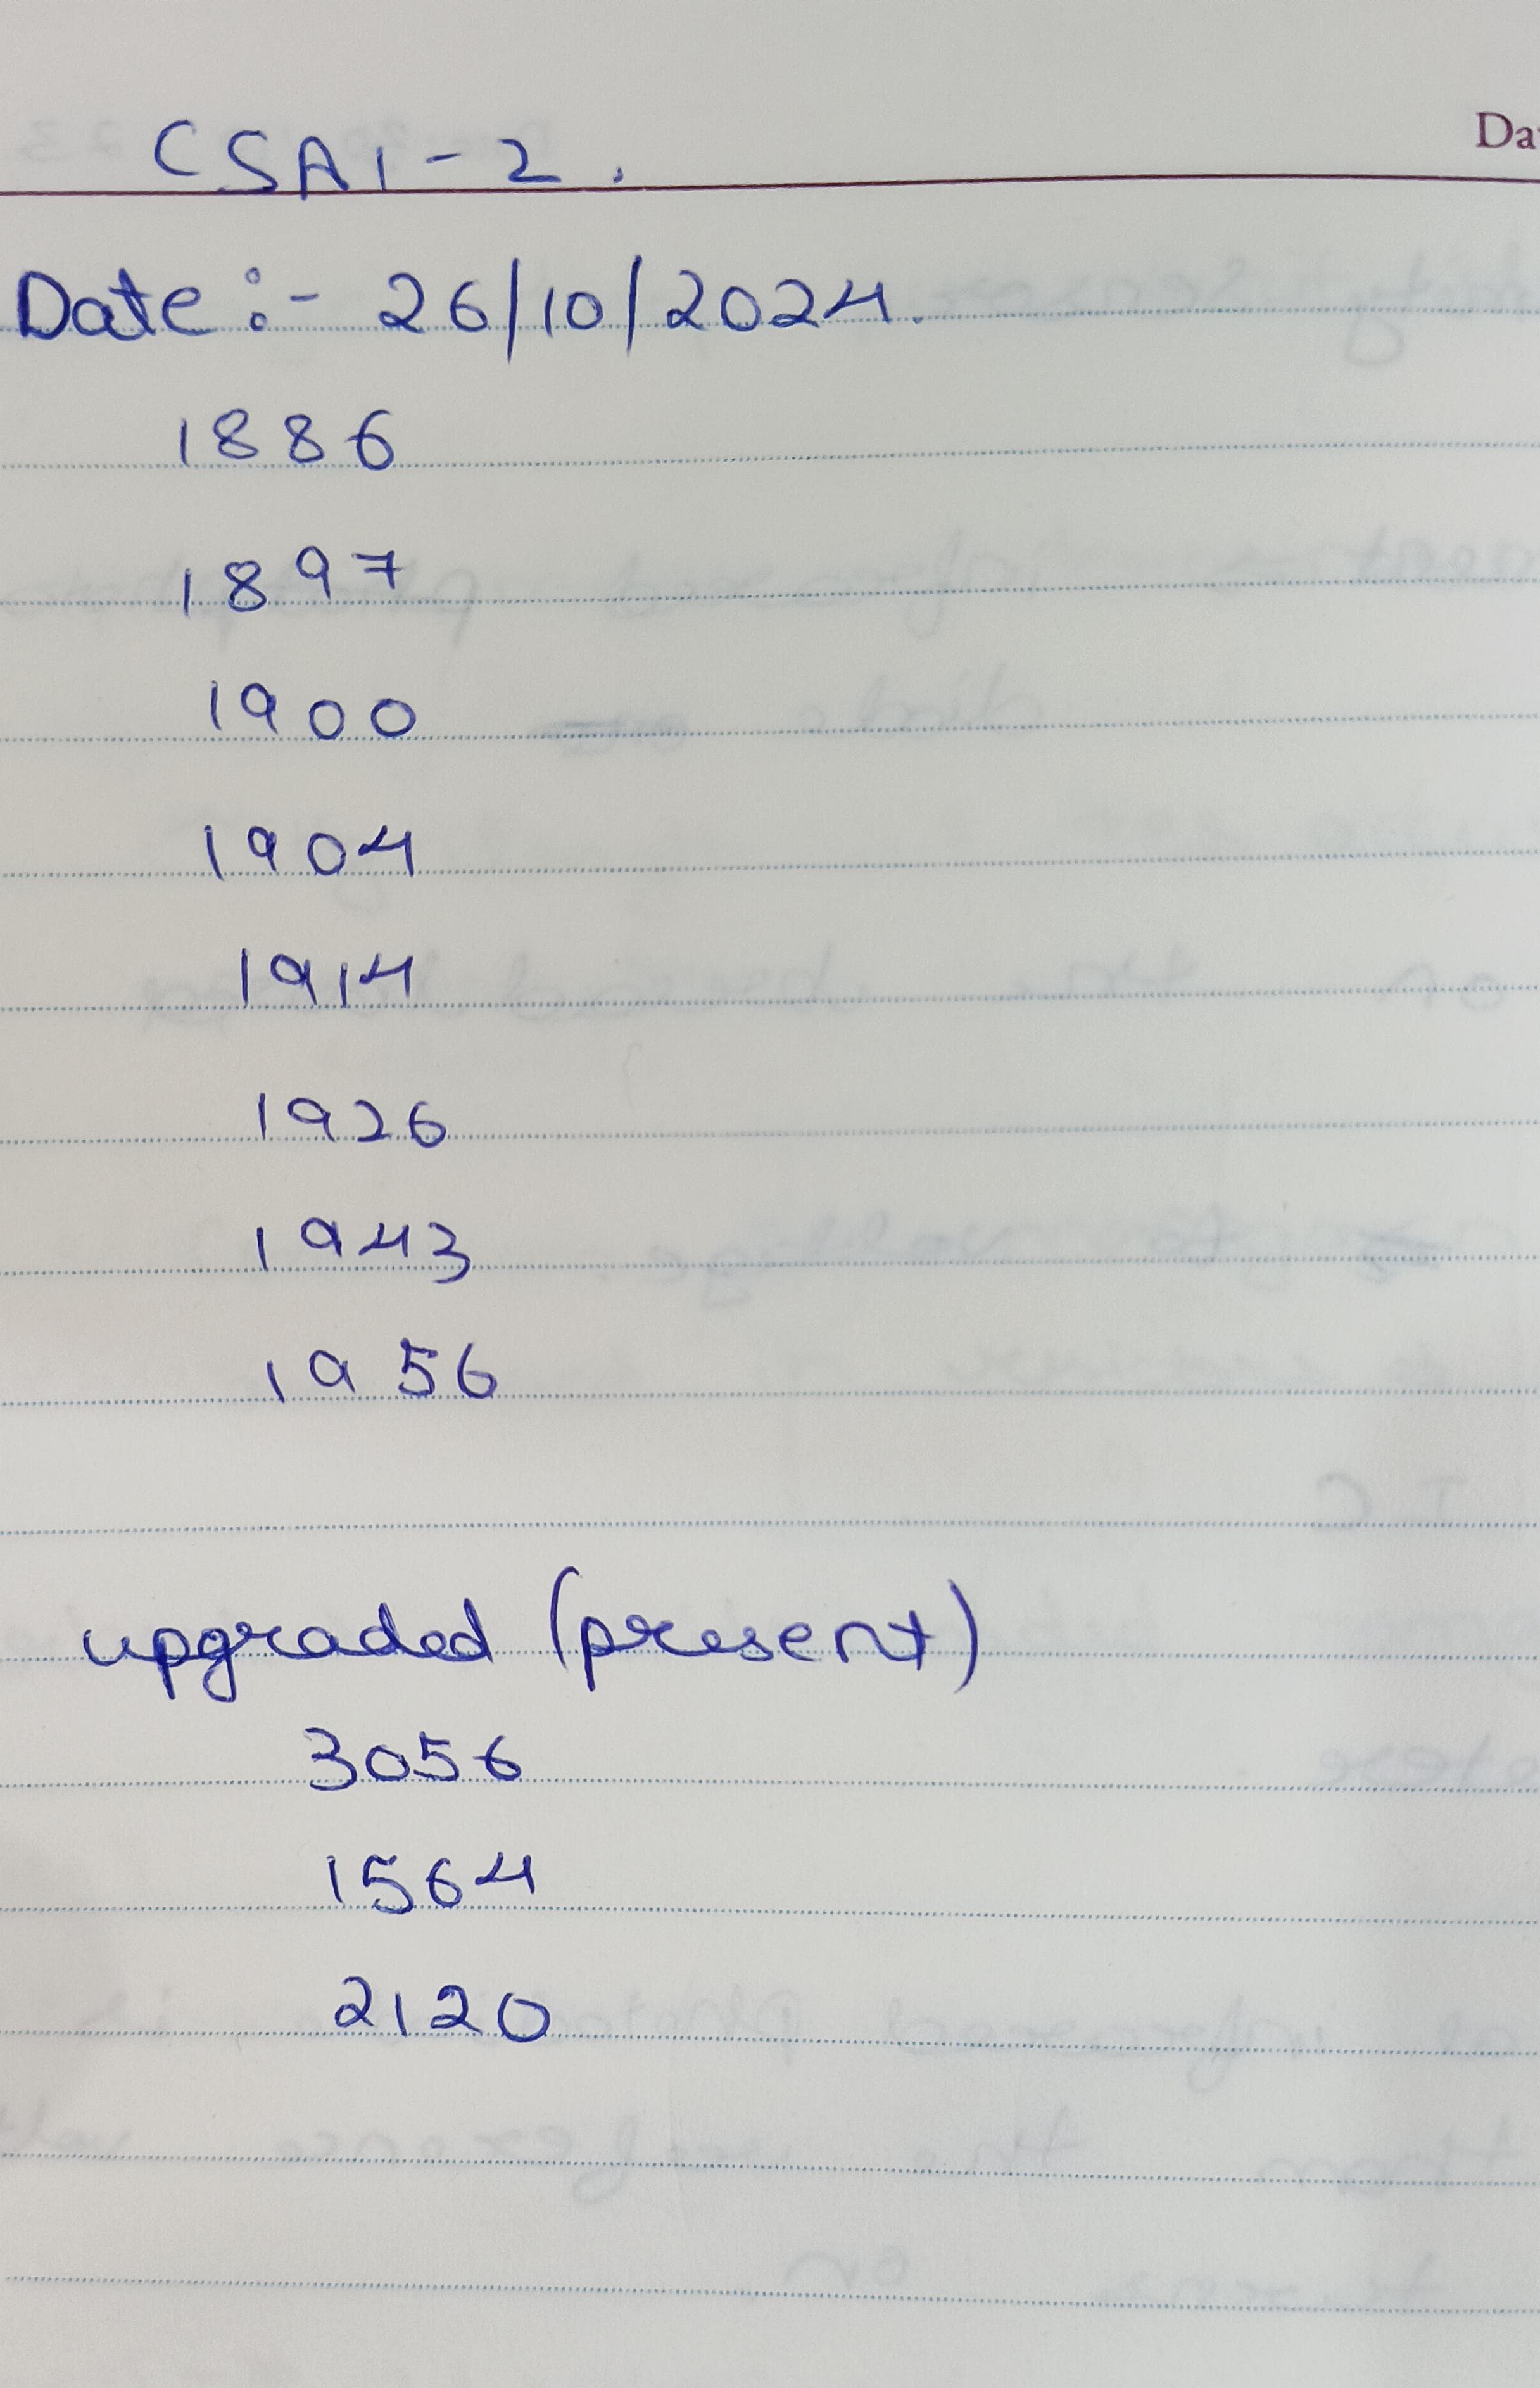 Da
CSAI-2.
Date:- 26/10/2024.
1886
1897
1900
1904
1914
1926
1943
1956
upgraded (present)
3056
1564
2120